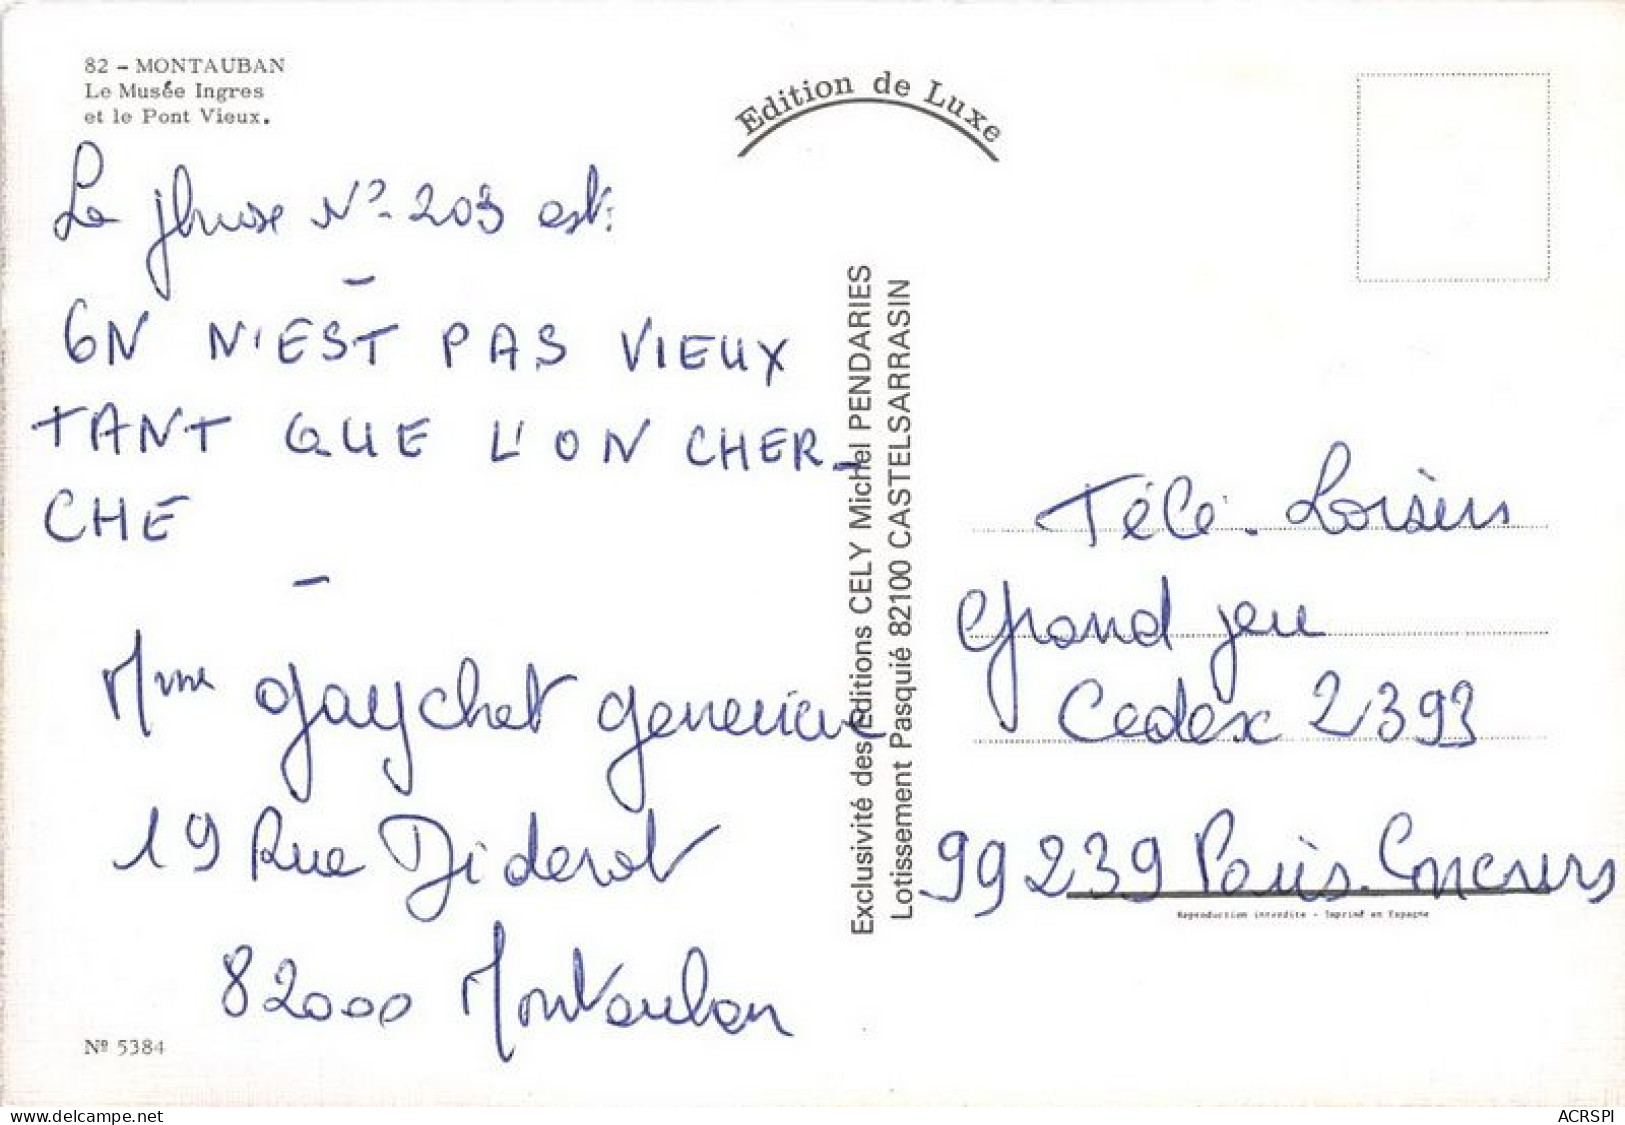 82 - MONTAUBAN
Le Musée Ingres
et le Pont Vieux.
Edition de Luxe
La phrase N°- 203 est:
ON N'EST PAS VIEUX
TANT QUE L'ON CHER-
CHE
Mme Gaychet Genevieve
19 Rue Diderot
82000 Montauban
Nº 5384
Exclusivité des Editions CELY Michel PENDARIES
Lotissement Pasquié 82100 CASTELSARRASIN
Télé-Loisirs
Grand jeu
Cedex 2393
99239 Paris-Concours
Reproduction interdite - Imprimé en Espagne
delcampe.net
ACRSPI